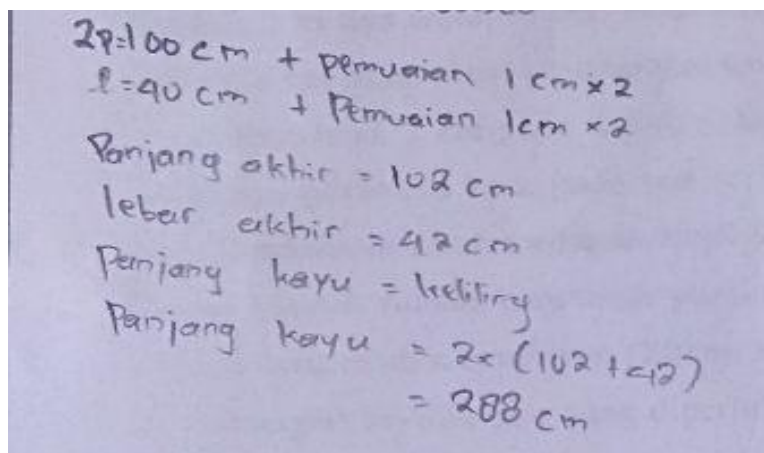 2p=100 cm + pemuaian 1 cm x 2
l=40 cm + Pemuaian 1cm x2
Panjang akhir = 102 cm
lebar akhir = 42 cm
Panjang kayu = keliling
Panjang kayu = 2x (102 + 42)
= 288 cm